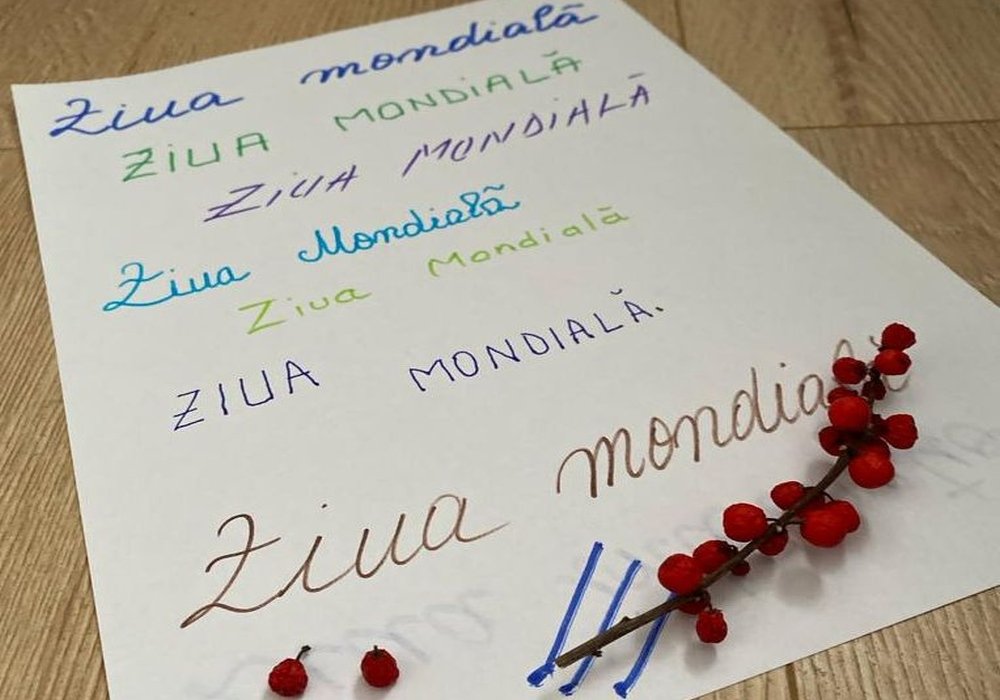 Ziua mondială
ZIUA MONDIALĂ
ZIUA MONDIALĂ
Ziua Mondială
Ziua Mondială
ZIUA MONDIALĂ.
Ziua